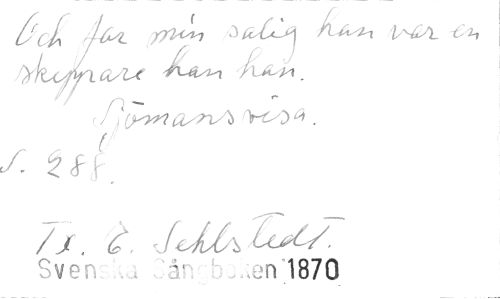 Och far min salig han var en
skeppare han han.
Sjömansvisa.
S. 288.
Tx. E. Sehlstedt.
Svenska Sångboken 1870